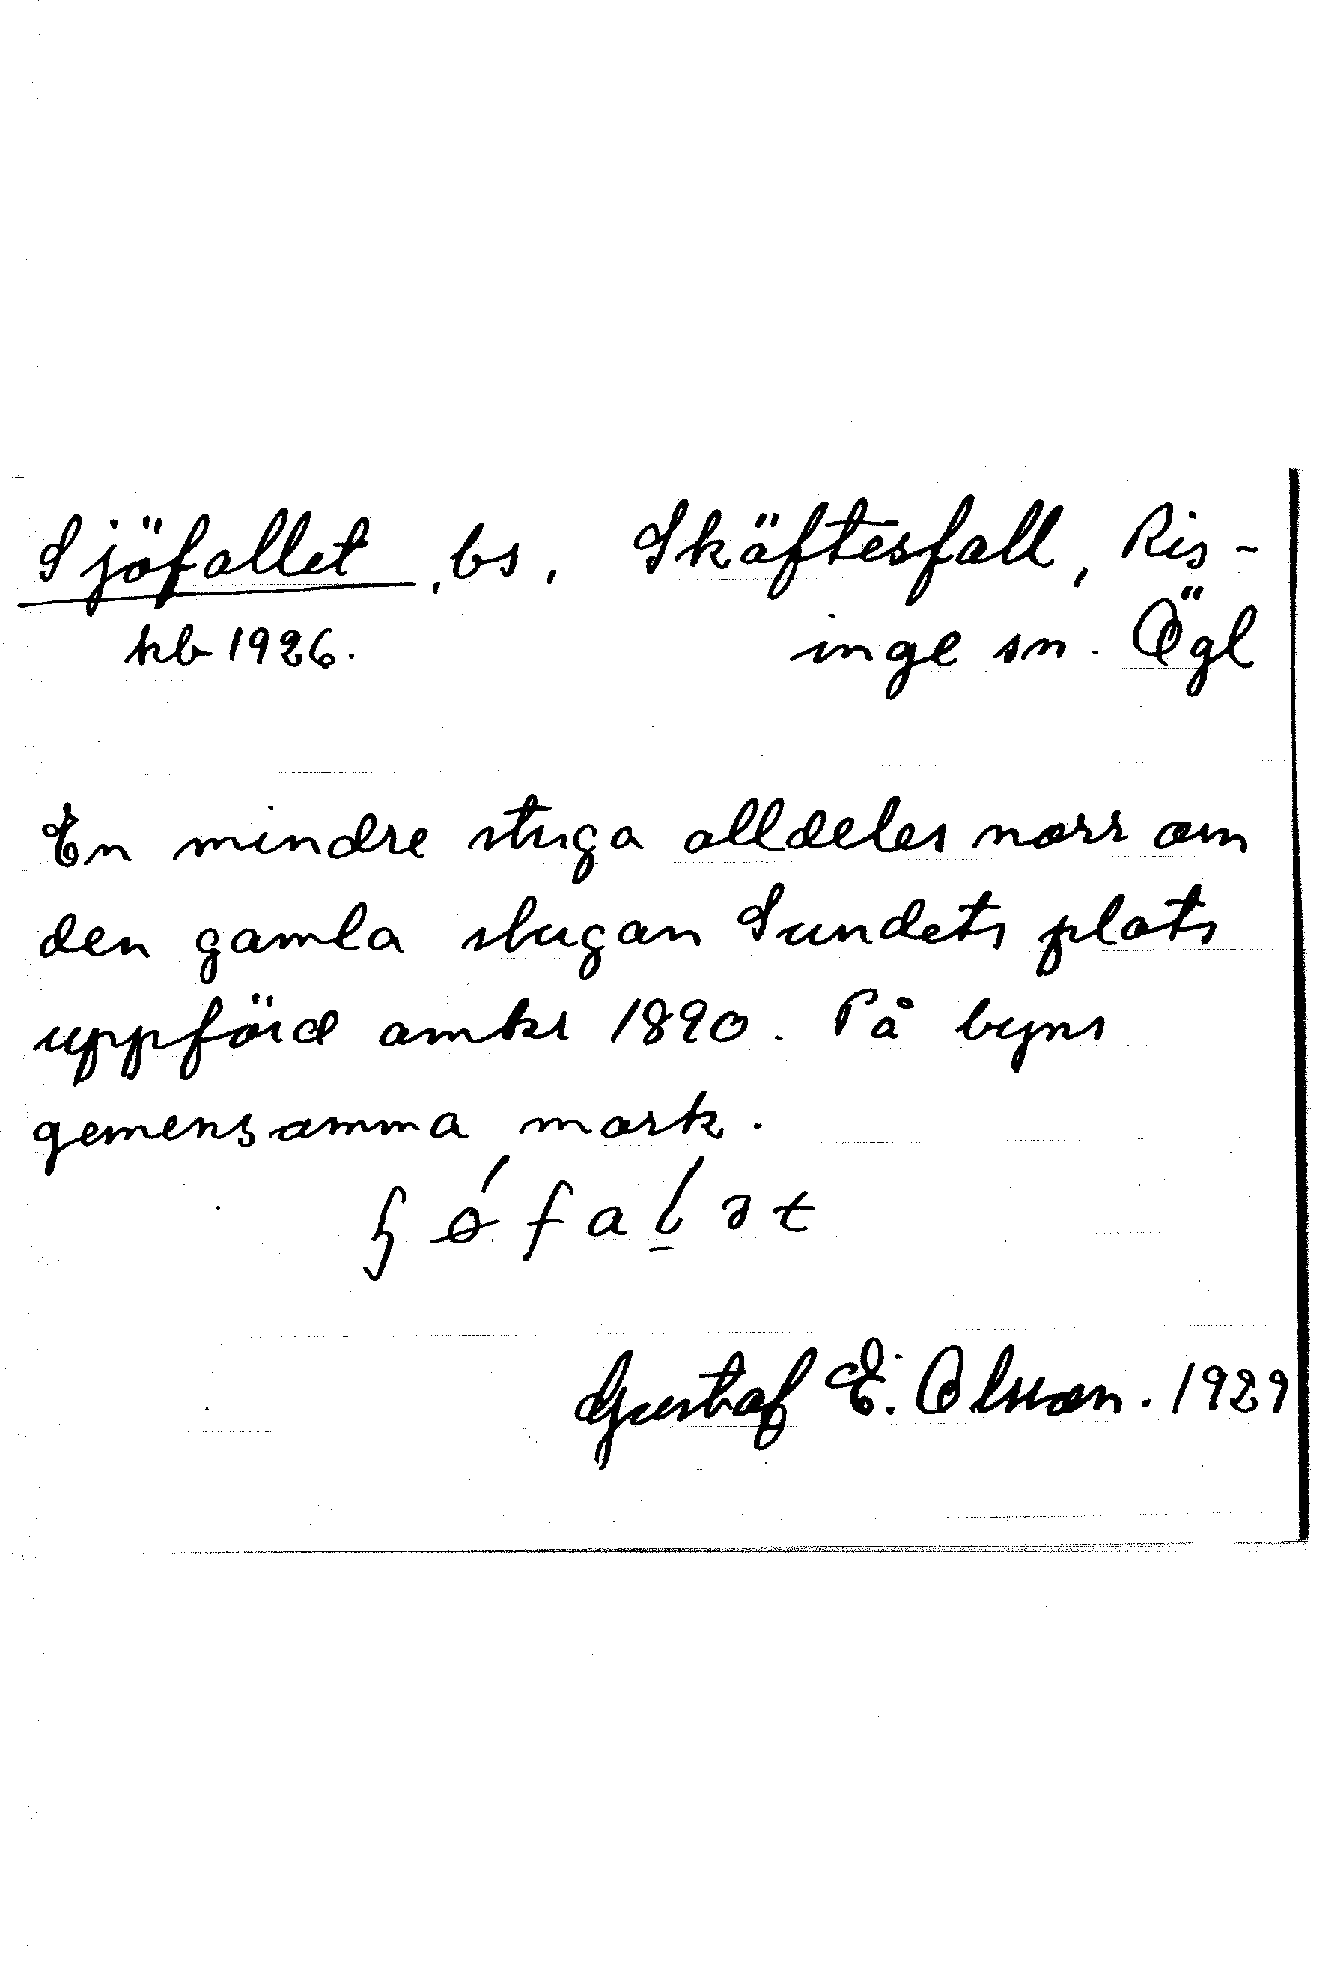 Sjöfallet, bs, Skäftesfall, Ris-
kb 1926. inge sn. Ögl
En mindre stuga alldeles norr om
den gamla stugan Sundets plats
uppförd omkr 1890. På byns
gemensamma mark.
Gustaf E. Olsson. 1929